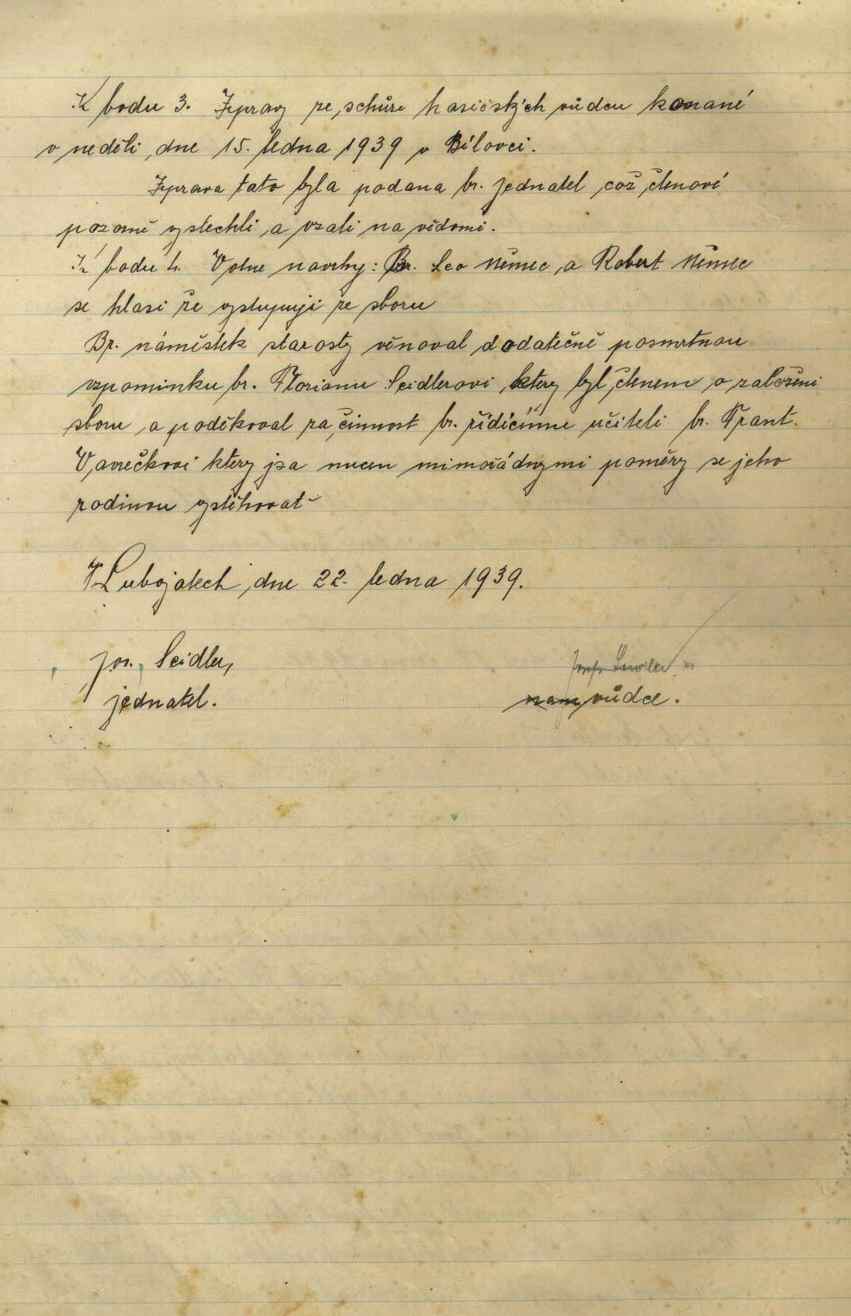 K bodu 3. Zpravy ze schůze hasičských vůdcu konané
v neděli dne 15. ledna 1939 v Bílovci.
Zprava tato byla podana br. jednatel což členové
pozorně vyslechli a vzali na vědomi.
K bodu 4. Volne navrhy: Br. Leo Němec a Robert Němec
se hlasi že vystupuji ze sboru
Br. náměstek starosty věnoval dodatečně posmrtnou
vzpominku br. Florianu Seidlerovi, ktery byl členem o založeni
sboru a poděkoval za činnost br. řídícímu učiteli br. Frant.
Vavrečkovi ktery jsa nucen mimořádnymi poměry se jeho
rodinou vystěhovat
V Lubojatech dne 22. ledna 1939.
Jos. Seidler,
jednatel.
Josef
nam vůdce.